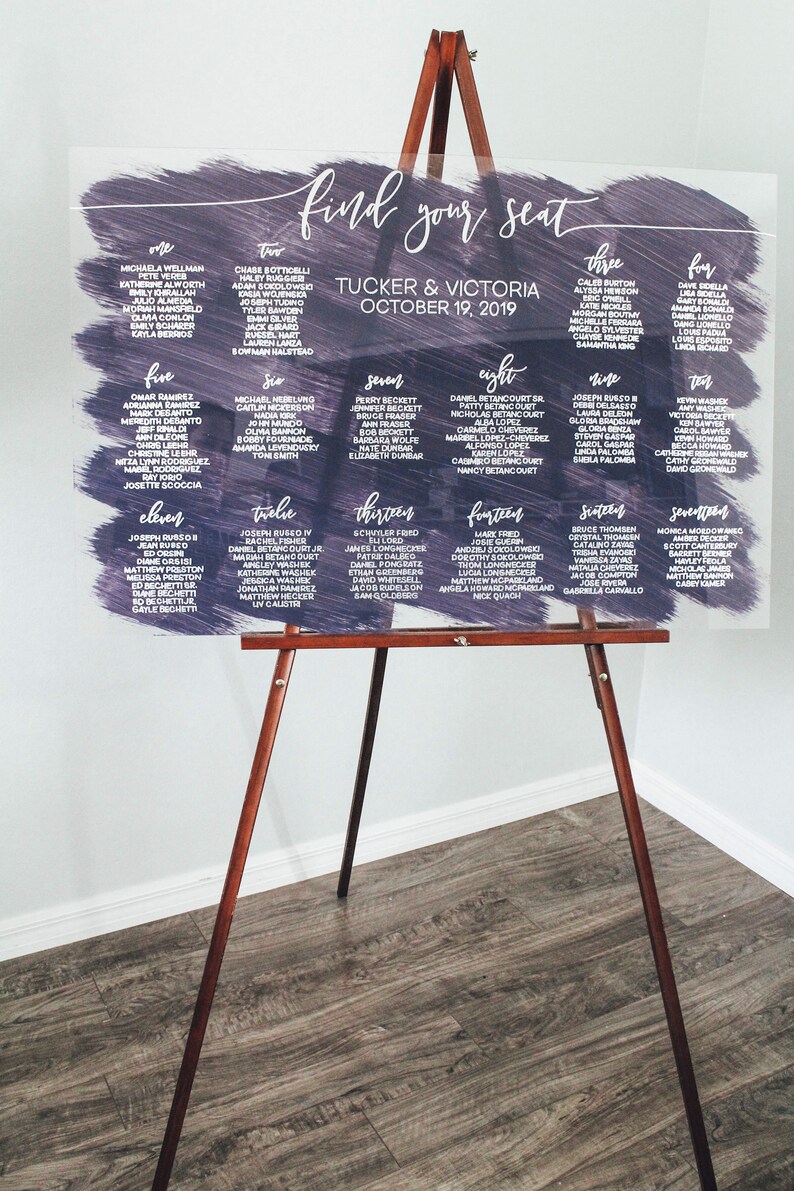 find your seat
TUCKER & VICTORIA
OCTOBER 19, 2019
one
MICHAELA WELLMAN
PETE VEREB
KATHERINE ALWORTH
EMILY KHIRALLAH
JULIO ALMEDIA
MORIAH MANSFIELD
OLIVIA CONLON
EMILY SCHARER
KAYLA BERRIOS
two
CHASE BOTTICELLI
HALEY RUGGIERI
ADAM SOKOLOWSKI
KASIA WOJENSKA
JOSEPH TUDINO
TYLER BAWDEN
EMMI SILVER
JACK GIRARD
RUSSEL HART
LAUREN LANZA
BOWMAN HALSTEAD
three
CALEB BURTON
ALYSSA HEWSON
ERIC O'NEILL
KATIE NICKLES
MORGAN BOUTMY
MICHELLE FERRARA
ANGELO SYLVESTER
CHAYSE KENNEDIE
SAMANTHA KING
four
DAVE SIDELLA
LISA SIDELLA
GARY BONALDI
AMANDA BONALDI
DANIEL LIONELLO
DANG LIONELLO
LOUIS PADUA
LOUIS ESPOSITO
LINDA RICHARD
five
OMAR RAMIREZ
ADRIANNA RAMIREZ
MARK DESANTO
MEREDITH DESANTO
JEFF RINALDI
ANN DILEONE
CHRIS LEEHR
CHRISTINE LEEHR
NITZA LYNN RODRIGUEZ
MABEL RODRIGUEZ
RAY IORIO
JOSETTE SCOCCIA
six
MICHAEL NEBELUNG
CAITLIN NICKERSON
NADIA KIRK
JOHN MUNDO
OLIVIA BANNON
BOBBY FOURNIADE
AMANDA LEVENDUSKY
TOM SMITH
seven
PERRY BECKETT
JENNIFER BECKETT
BRUCE FRASER
ANN FRASER
BOB BECKETT
BARBARA WOLFE
NATE DUNBAR
ELIZABETH DUNBAR
eight
DANIEL BETANCOURT SR.
PATTY BETANCOURT
NICHOLAS BETANCOURT
ALBA LOPEZ
CARMELO CHEVEREZ
MARIBEL LOPEZ-CHEVEREZ
ALFONSO LOPEZ
KAREN LOPEZ
CASIMIRO BETANCOURT
NANCY BETANCOURT
nine
JOSEPH RUSSO III
DEBBI DELSASSO
LAURA DELEON
GLORIA BRADSHAW
GLORIA BENZA
STEVEN GASPAR
CAROL GASPAR
LINDA PALOMBA
SHEILA PALOMBA
ten
KEVIN WASHEK
AMY WASHEK
VICTORIA BECKETT
KEN SAWYER
CAROL SAWYER
KEVIN HOWARD
BECCA HOWARD
CATHERINE REGAN WASHEK
CATHY GRONEWALD
DAVID GRONEWALD
eleven
JOSEPH RUSSO II
JEAN RUSSO
ED ORSINI
DIANE ORSISI
MATTHEW PRESTON
MELISSA PRESTON
ED BECHETTI SR.
DIANE BECHETTI
ED BECHETTI JR.
GAYLE BECHETTI
twelve
JOSEPH RUSSO IV
RACHEL FISHER
DANIEL BETANCOURT JR.
MARIAH BETANCOURT
AINSLEY WASHEK
KATHERINE WASHEK
JESSICA WASHEK
JONATHAN RAMIREZ
MATTHEW HECKER
LIV CALISTRI
thirteen
SCHUYLER FRIED
ELI LORD
JAMES LONGNECKER
PATRIK DALBEG
DANIEL PONGRATZ
ETHAN GREENBERG
DAVID WHITESELL
JACOB RUDELSON
SAM GOLDBERG
fourteen
MARK FRIED
JOSIE GUERIN
ANDZELI SOKOLOWSKI
DOROTHY SOKOLOWSKI
THOM LONGNECKER
LUCIA LONGNECKER
MATTHEW MCPARKLAND
ANGELA HOWARD MCPARKLAND
NICK QUACH
sixteen
BRUCE THOMSEN
CRYSTAL THOMSEN
CATALINO ZAYAS
TRISHA EVANOSKI
VANESSA ZAYAS
NATALIA CHEVEREZ
JACOB COMPTON
JOSE RIVERA
GABRIELLA CARVALLO
seventeen
MONICA MORDOWANEC
AMBER DECKER
SCOTT CANTERBURY
BARRETT BERNER
HAYLEY FEOLA
NICHOLAS JAMES
MATTHEW BANNON
CASEY KILMER